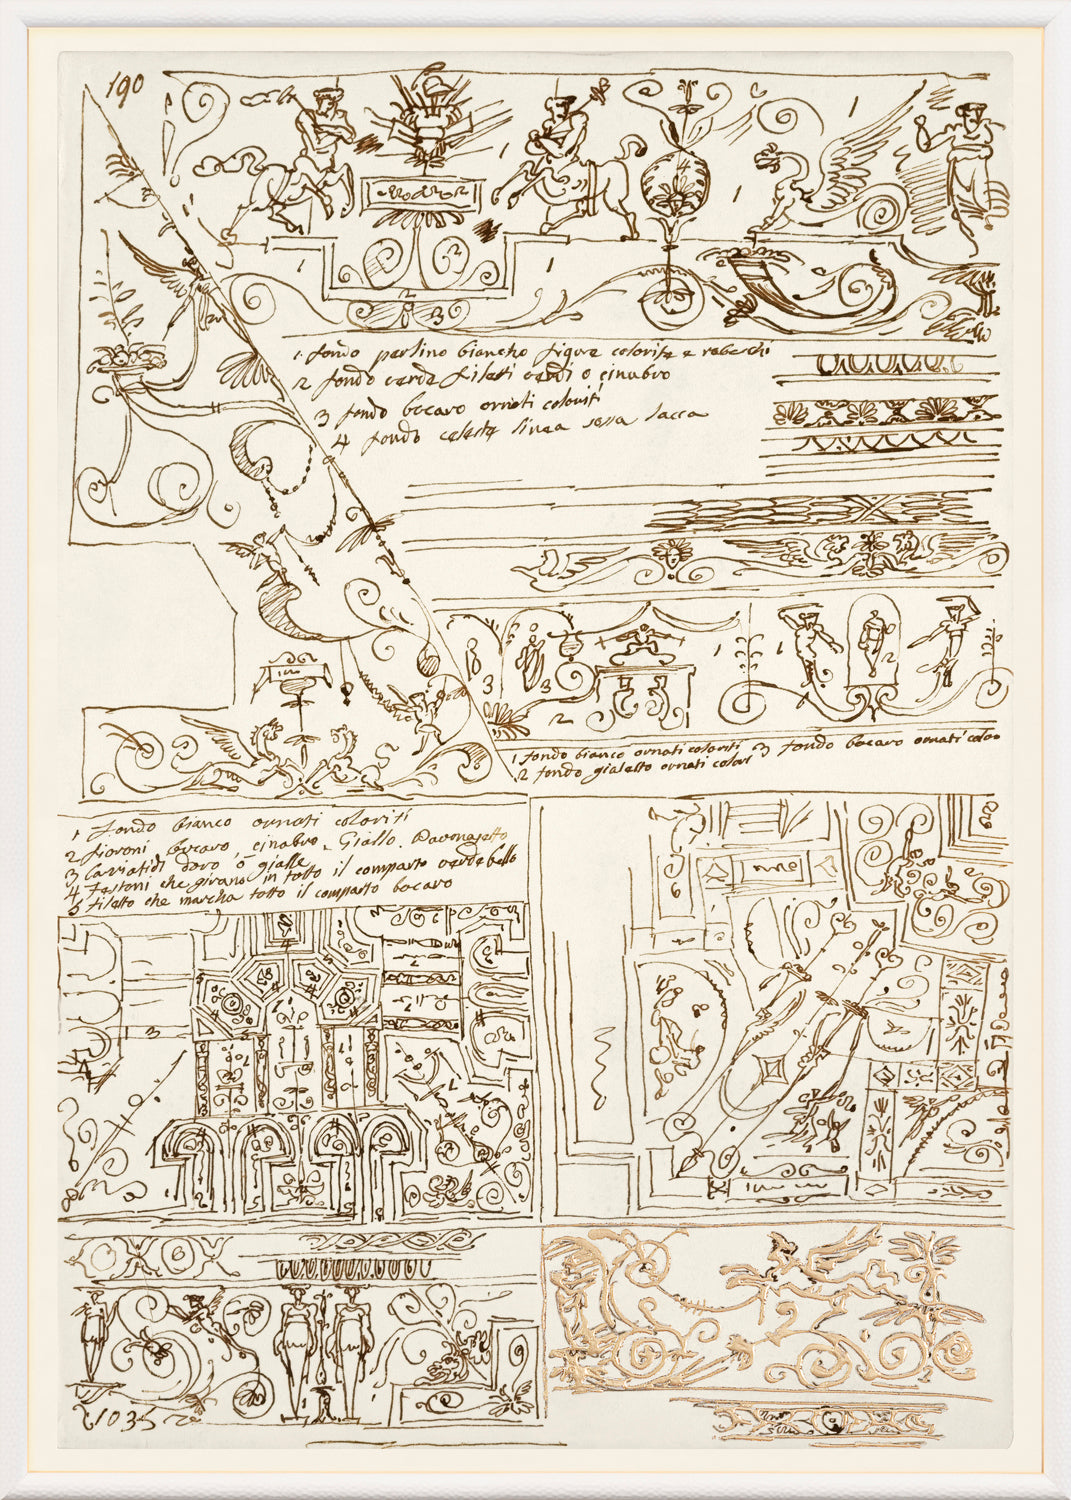 190
1. fondo perlino biancho figure colorite e rabeschi
2 fondo verde filetti verdi o cinabro
3 fondo bocaro ornati coloriti
4 fondo celeste linea rossa lacca
1 fondo bianco ornati coloriti 3 fondo bocaro ornati colo
2 fondo gialetto ornati colori
1 fondo bianco ornati coloriti
2 fioroni bocaro, cinabro, Giallo, Paonazetto
3 Cariatidi doro o gialle
4 Festoni che girano in totto il comparto verde bello
5 filetto che marcha totto il comparto bocaro
1035